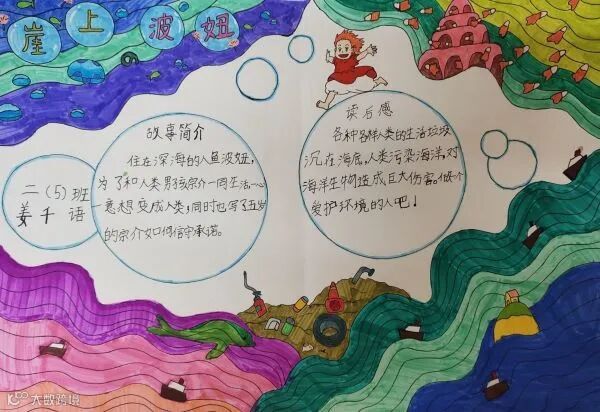 崖上波妞
故事简介
住在深海的人鱼波妞,
为了和人类男孩宗介一同生活,一心
一意想变成人类;同时也写了五岁
的宗介如何信守承诺。
二(5)班
姜千语
读后感
各种各样人类的生活垃圾
沉在海底,人类污染海洋,对
海洋生物造成巨大伤害。做个
爱护环境的人吧!
大数跨境